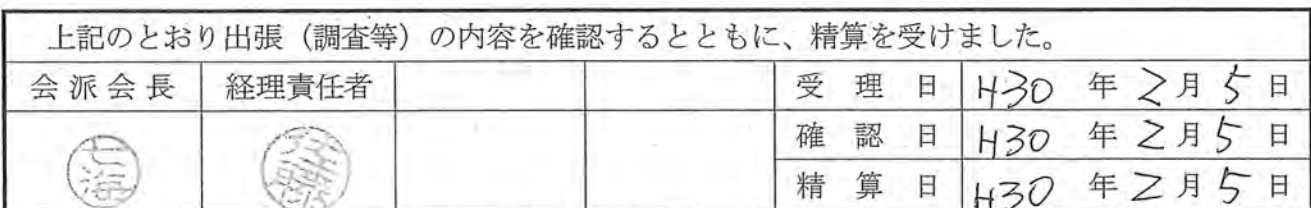 上記のとおり出張（調査等）の内容を確認するとともに、精算を受けました。
会派会長 経理責任者 受理日 H30 年 2月 5日
確認日 H30 年 2月 5日
精算日 H30 年 2月 5日